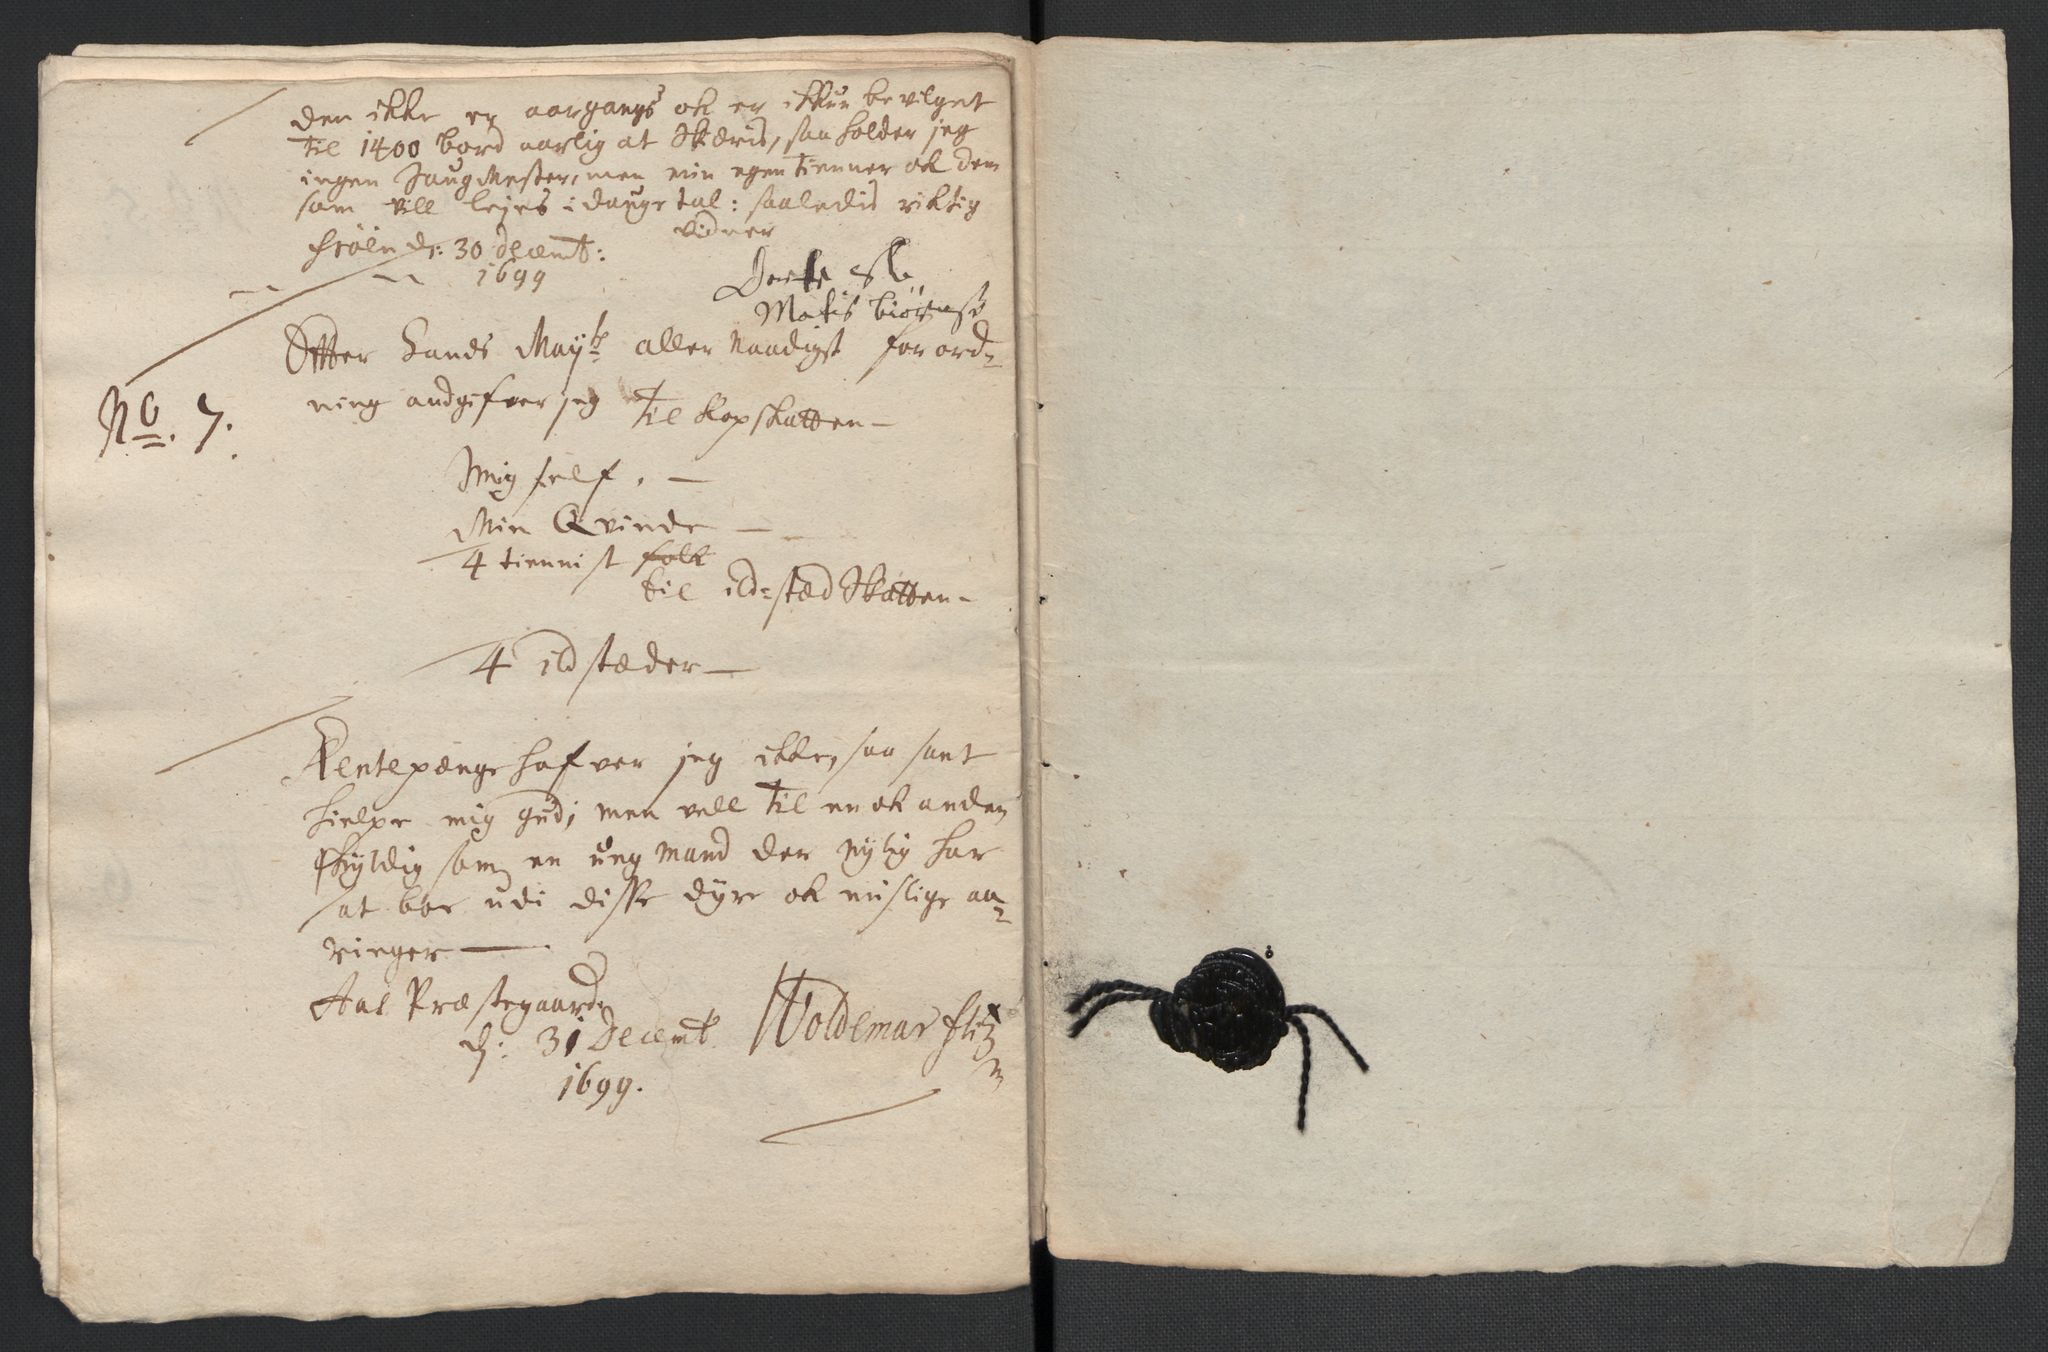 den ikke er aargangs ok er ikkun bevilget
til 1400 bord aarlig at Skæris, saa holder jeg
ingen Saugmester, men min egen tienner ok dem
som vill leyes i daugetal: saaledis riktig
d: 30 decemb: vidner
1699
Matis
Efter Hands Mayts aller naadigst forord=
ning andgifver jeg til Kopskatten —
No. 7.
Mig self . —
Min Qvinde —
4 tiennist folk
til ild=stæd Skatten —
4 ildstæder —
Rentepænge hafver jeg ikke, saa sant
hielpe mig gud, men vell til en ok anden
skyldig som en ung mand der nylig har
at boe udi disse dyre ok mislige aa=
ringer —
Aal Præstegaard
d: 31 Decemb.
1699.
Woldemar